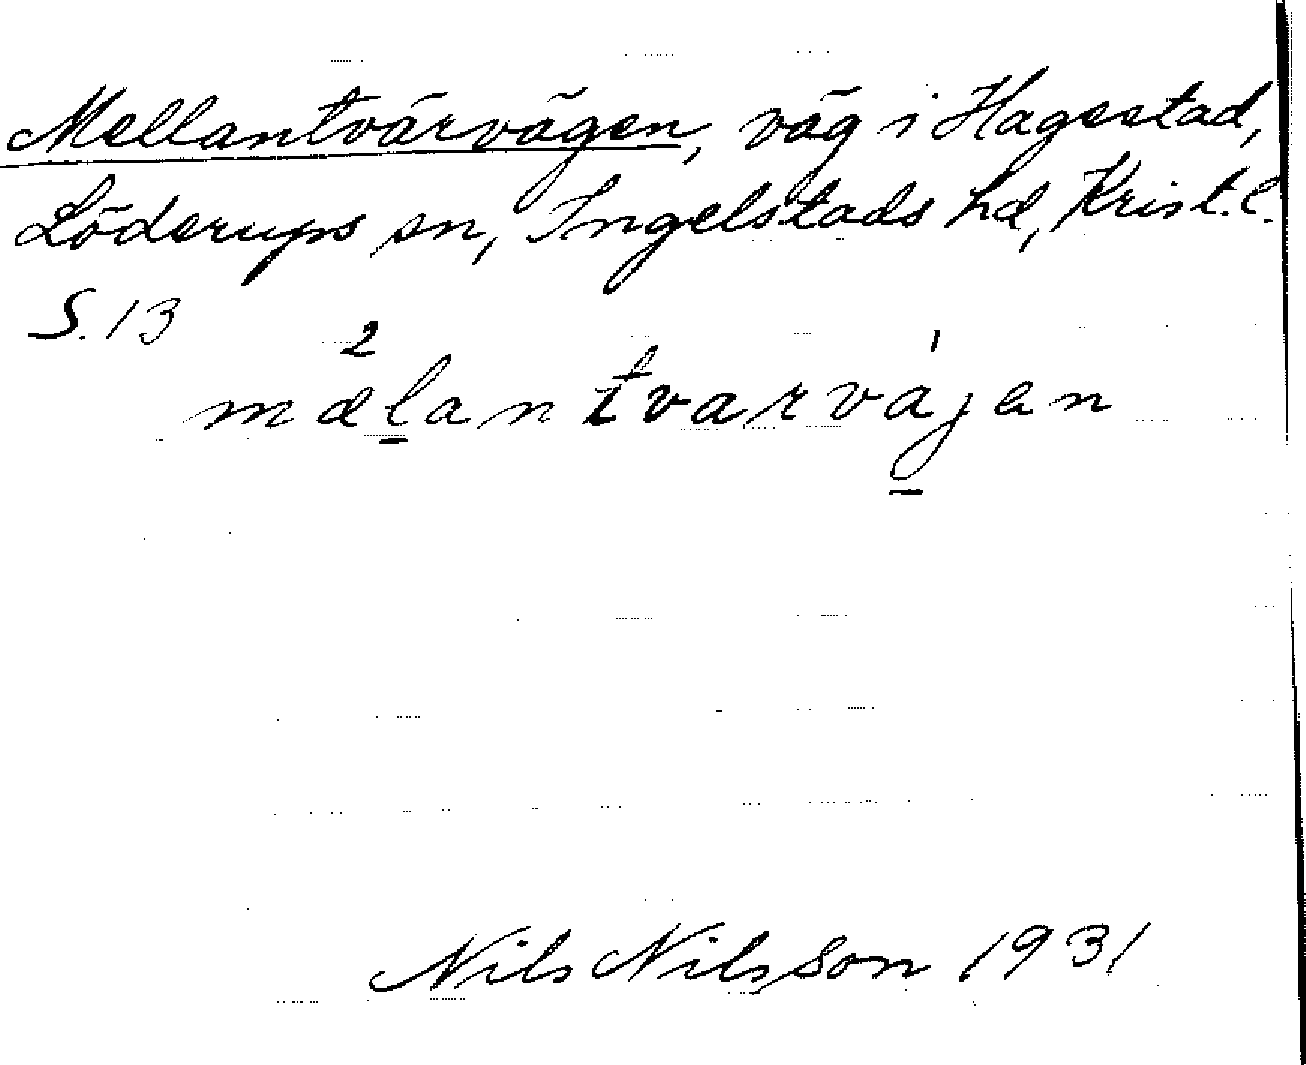 Mellantvärvägen, väg i Hagestad,
Löderups sn, Ingelstads hd, Krist. l.
S. 13
mälantvarväjen
Nils Nilsson 1931